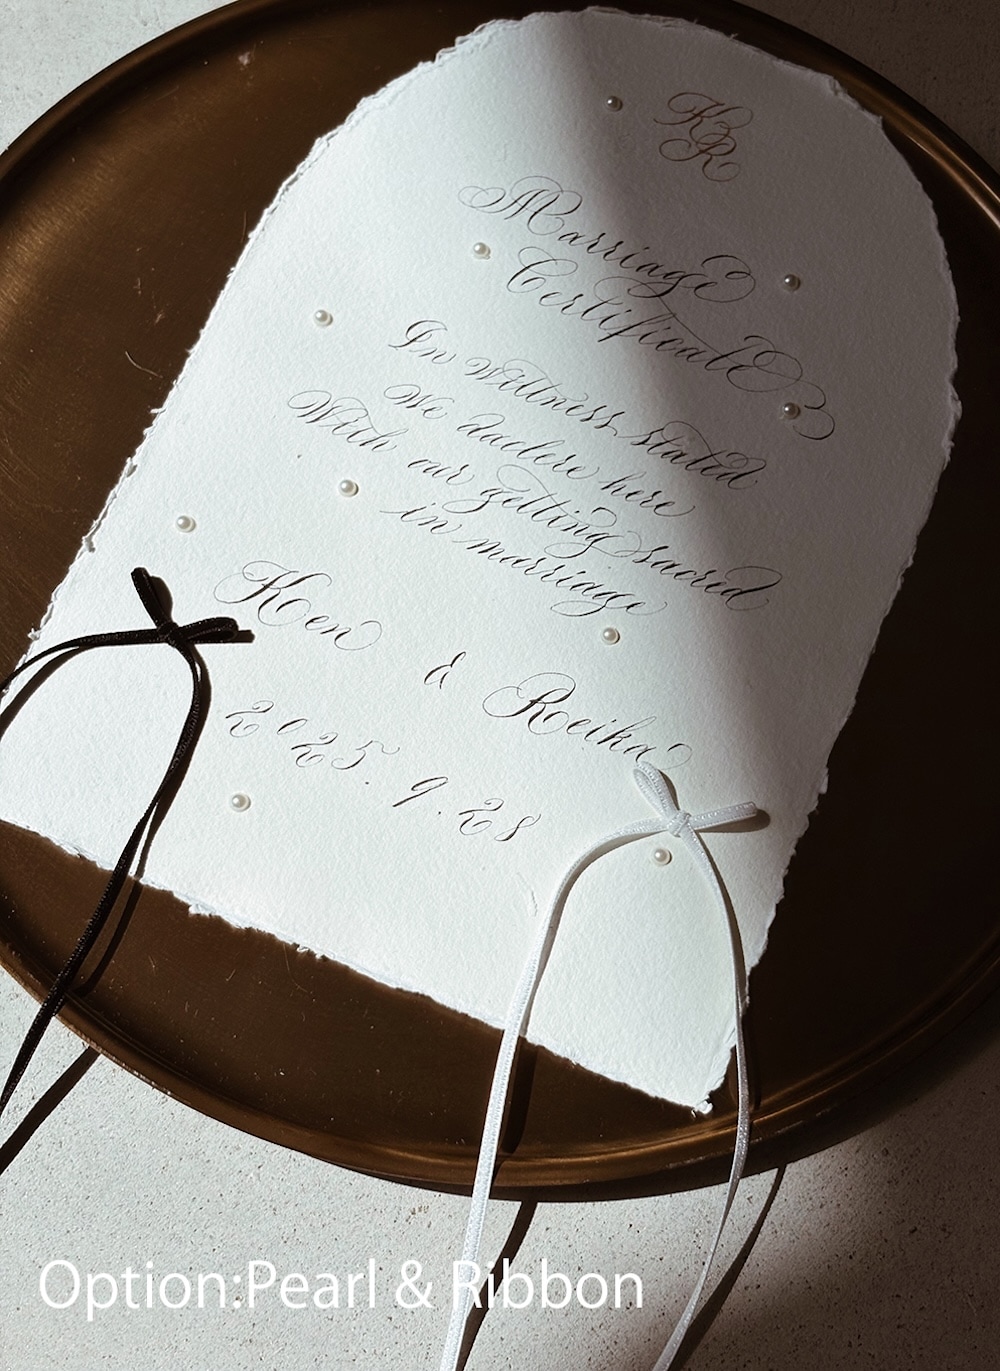 KR
Marriage
Certificate
In wittness stated
We daclere here
With our getting sacred
in marriage
Ken & Reika
2025. 9. 28
Option:Pearl & Ribbon